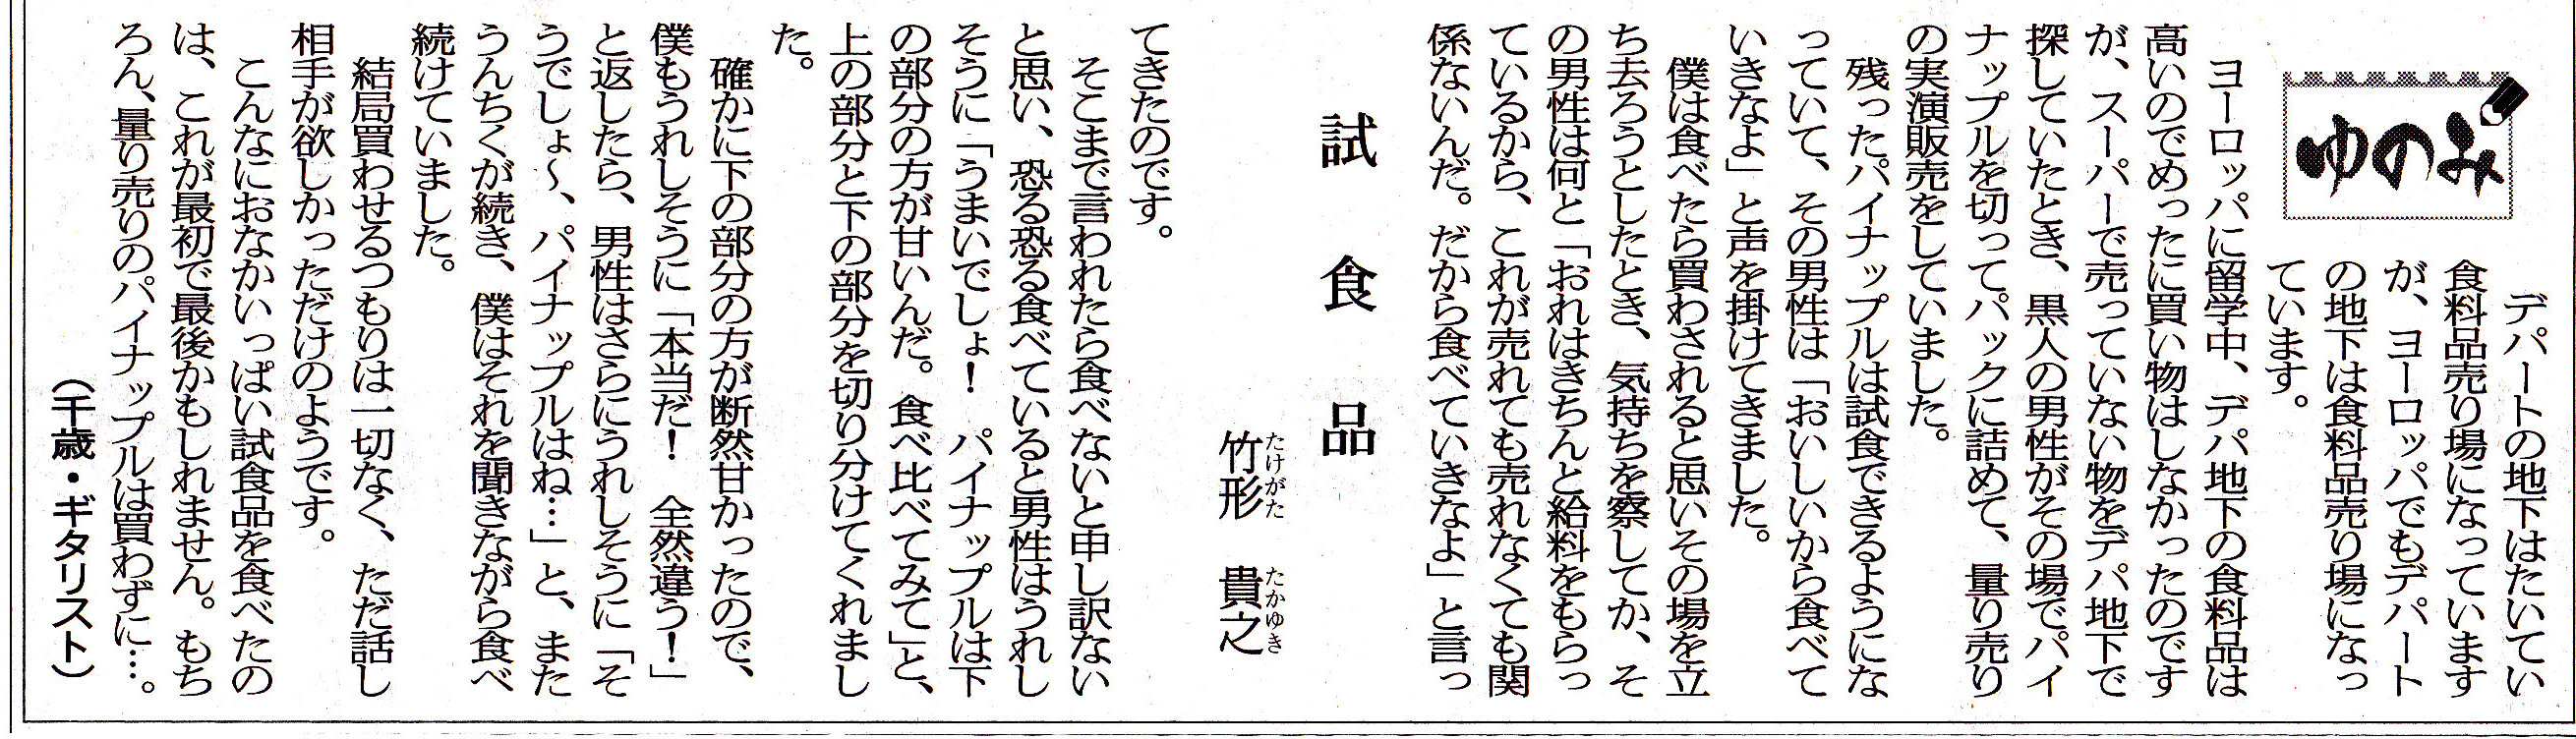 ゆのみ
デパートの地下はたいてい
食料品売り場になっています
が、ヨーロッパでもデパート
の地下は食料品売り場になっ
ています。
ヨーロッパに留学中、デパ地下の食料品は
高いのでめったに買い物はしなかったのです
が、スーパーで売っていない物をデパ地下で
探していたとき、黒人の男性がその場でパイ
ナップルを切ってパックに詰めて、量り売り
の実演販売をしていました。
残ったパイナップルは試食できるようにな
っていて、その男性は「おいしいから食べて
いきなよ」と声を掛けてきました。
僕は食べたら買わされると思いその場を立
ち去ろうとしたとき、気持ちを察してか、そ
の男性は何と「おれはきちんと給料をもらっ
ているから、これが売れても売れなくても関
係ないんだ。だから食べていきなよ」と言っ
試食品
竹形 貴之
たけがた たかゆき
てきたのです。
そこまで言われたら食べないと申し訳ない
と思い、恐る恐る食べていると男性はうれし
そうに「うまいでしょ! パイナップルは下
の部分の方が甘いんだ。食べ比べてみて」と、
上の部分と下の部分を切り分けてくれまし
た。
確かに下の部分の方が断然甘かったので、
僕もうれしそうに「本当だ! 全然違う!」
と返したら、男性はさらにうれしそうに「そ
うでしょ~、パイナップルはね…」と、また
うんちくが続き、僕はそれを聞きながら食べ
続けていました。
結局買わせるつもりは一切なく、ただ話し
相手が欲しかっただけのようです。
こんなにおなかいっぱい試食品を食べたの
は、これが最初で最後かもしれません。もち
ろん、量り売りのパイナップルは買わずに…。
(千歳・ギタリスト)